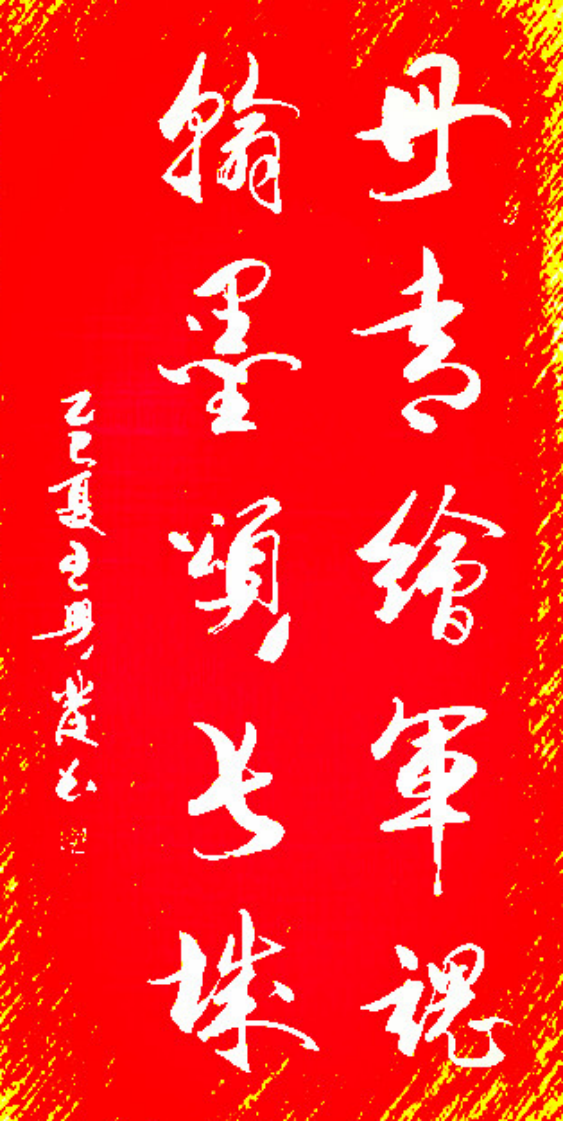 丹青繪軍魂
翰墨頌長城
乙巳夏王興发书